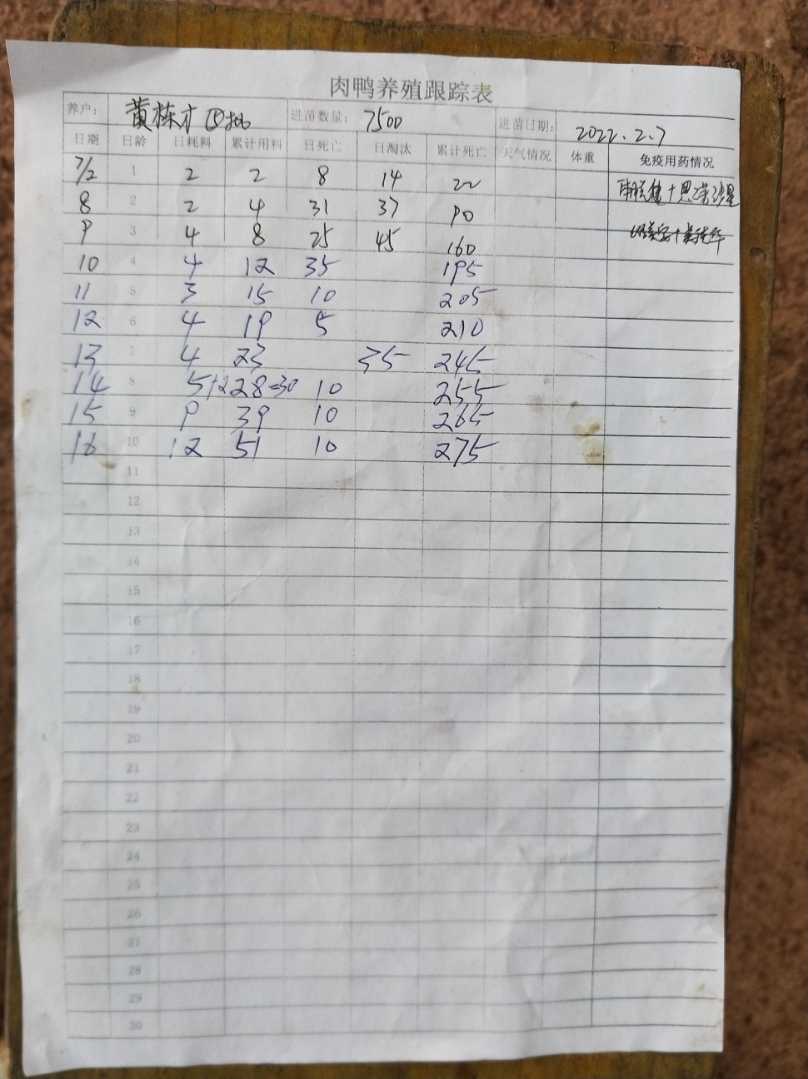 肉鸭养殖跟踪表
养户: 黄栋才 ⑤批 进苗数量: 7500 进苗日期: 2022.2.7
日期 日龄 日耗料 累计用料 日死亡 日淘汰 累计死亡 天气情况 体重 免疫用药情况
7/2 1 2 2 8 14 22
8 2 2 4 31 37 90
9 3 4 8 25 45 160
10 4 4 12 35 195
11 5 3 15 10 205
12 6 4 19 5 210
13 7 4 23 35 245
14 8 5+2 28=30 10 255
15 9 9 39 10 265
16 10 12 51 10 275
11
12
13
14
15
16
17
18
19
20
21
22
23
24
25
26
27
28
29
30